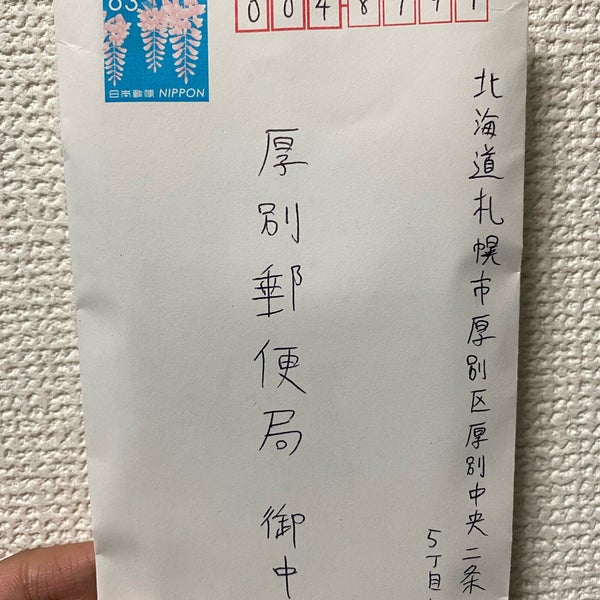 63
日本郵便 NIPPON
004-8799
北海道札幌市厚別区厚別中央二条
5丁目
厚別郵便局 御中